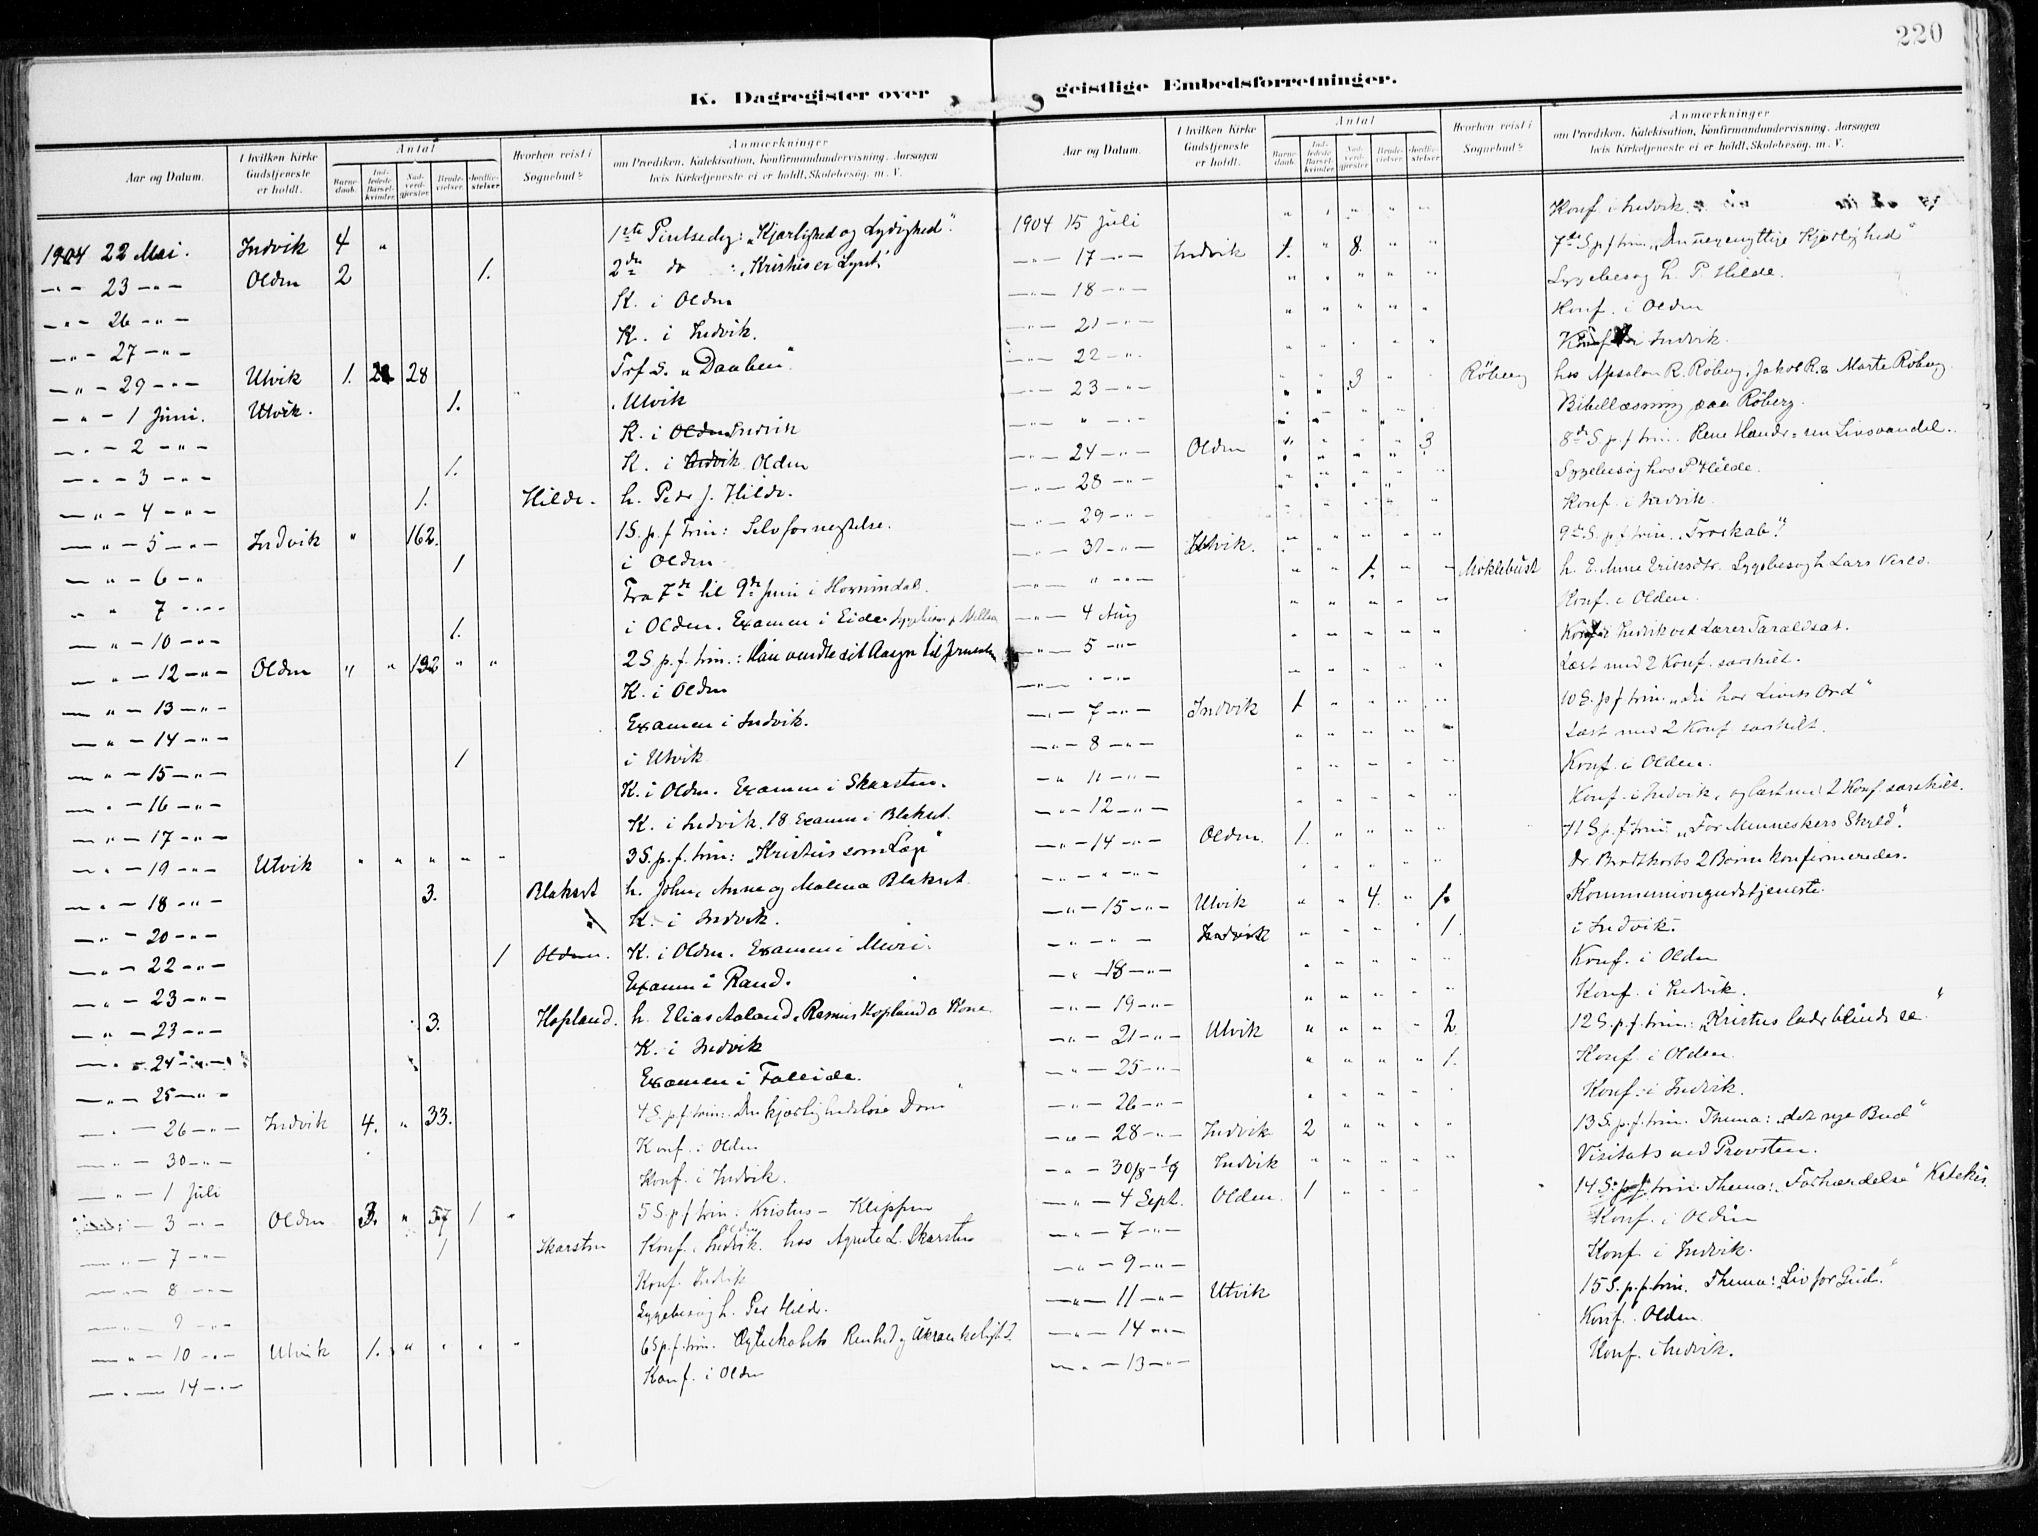 220
K. Dagregister over geistlige Embedsforretninger.
Aar og Datum. I hvilken Kirke Gudstjeneste er holdt. Antal Barnedaab. Indledede Barselkvinder. Nadverdgjester. Brudevielser. Jordfæstelser. Hvorhen reist i Sognebud. Anmærkninger om Prædiken, Katekisation, Konfirmandundervisning, Aarsagen hvis Kirketjeneste ei er holdt, Skolebesøg, m. V.
1904 22 Mai. Indvik 4 " 1ste Pintsedag: "Kjærlighed og Lydighed".
-"- 23 -"- Olden 2 1. 2den do : "Kristus er Lyset"
-"- 26 -"- K. i Olden
-"- 27 -"- K. i Indvik.
-"- 29 -"- Utvik 1. 28 Trf S. "Daaben".
-"- 1 Juni. Utvik. 1. Utvik
-"- 2 -"- K. i Olden Indvik
-"- 3 -"- 1. K. i Indvik Olden
-"- 4 -"- 1. Hilde. h. Peder J. Hilde.
-"- 5 -"- Indvik " 162. 1 S. p. f. Trin: Selvfornegtelse.
-"- 6 -"- 1 i Olden
" " 7 -"- Fra 7de til 9de Juni i Hornindal.
-"- 10 -"- 1. i Olden. Examen i Eide
-"- 12 -"- Olden " " 192 " " 2 S. p. f. trin.: Han vendte sit Aasyn til
-"- 13 -"- K. i Olden
-"- 14 -"- Examen i Indvik.
-"- 15 -"- 1 i Utvik
-"- 16 -"- K. i Olden. Examen i Skarsten.
-"- 17 -"- K. i Indvik. 18 Examen i Blakset.
-"- 19 -"- Utvik " " " " " 3 S. p. f. trin: "Kristus som Læge"
-"- 18 -"- 3. Blakset h. John, Anna og Malena Blakset.
-"- 20 -"- K. i Indvik.
-"- 22 -"- 1 Olden. K. i Olden. Examen i Muri.
-"- 23 -"- Examen i Rand.
-"- 23 -"- 3. Hopland. h. Elias Aaland, Rasmus Hopland a Kone
-"- 24 -"- K. i Indvik
-"- 25 -"- Examen i Falleide.
-"- 26 -"- Indvik 4. " 33. 4 S. p. f. trin: "Den kjærlighedsløse Dom"
-"- 30 -"- Konf. i Olden
-"- 1 Juli Konf. i Indvik.
-"- 3 -"- Olden 3. " 57 1 " 5 S. p f trin: Kristus - Klippen
-"- 7 -"- 1 Skarsten Konf. i Indvik. Olden hos Agnete L. Skarsten
-"- 8 -"- Konf. Indvik
-"- 9 -"- Sygebesøg h. Per Hilde.
-"- 10 -"- Utvik 1. " " " " 6 S. p. f. trin. Ægteskabets Renhed og Ukrænkelighed.
-"- 14 -"- Konf. i Olden
Aar og Datum. I hvilken Kirke Gudstjeneste er holdt. Antal Barnedaab. Indledede Barselkvinder. Nadverdgjester. Brudevielser. Jordfæstelser. Hvorhen reist i Sognebud. Anmærkninger om Prædiken, Katekisation, Konfirmandundervisning, Aarsagen hvis Kirketjeneste ei er holdt, Skolebesøg, m. V.
1904 15 Juli " " " " " Konf. i Indvik.
-"- 17 -"- Indvik 1. " 8. " " 7de S. p f trin. "Den uegennyttige Kjærlighed"
-"- 18 -"- " " " " " Sygebesøg h. P Hilde.
-"- 21 -"- " " " " " Konf. i Olden
-"- 22 -"- " " " " " Konf. i Indvik.
-"- 23 -"- " " 3 " " Røberg hos Apsalon R. Røberg, Jakob R. & Marte Røberg.
-"- " -"- " " " " " Bibellæsning paa Røberg.
-"- 24 -"- Olden " " " " 3 8de S. p. f trin. Rene Hænder = ren Livsvandel.
-"- 28 -"- " " " " " Sygebesøg hos P Hilde.
-"- 29 -"- " " " " " Konf. i Indvik.
-"- 31 -"- Utvik. " " " " " 9de S. p. f. trin. "Troskab".
-"- " -"- " " 1. " " Moklebust h. E. Anne Eriksdtr. Sygebesøg h Lars
-"- 4 Aug " " " " " Konf. i Olden.
-"- 5 -"- " " " " " Konf i Indvik ved Lærer Taraldset.
-"- " -"- " " " " " Læst med 2 Konf. særskilt.
-"- 7 -"- Indvik 1 " " " " 10 S. p f trin. "Du har Livets Ord"
-"- 8 -"- " " " " " Læst med 2 Konf særskilt.
-"- 11 -"- " " " " " Konf. i Olden.
-"- 12 -"- " " " " " Konf. i Indvik, og læst med 2 Konf særskilt.
-"- 14 -"- Olden. 1. " " " " 11 S. p. f trin. "For Menneskers Skyld".
-"- " -"- " " " " " Dr. Brodtkorbs 2 Børn konfirmeredes.
-"- 15 -"- Utvik " " 4. " 1. Kommuniongudstjeneste.
-"- " -"- Indvik " " " " 1. i Indvik.
-"- 18 -"- " " " " " Konf. i Olden
-"- 19 -"- " " " " " Konf. i Indvik.
-"- 21 -"- Utvik " " " " 2 12 S. p. f. trin: "Kristus lader blinde se"
-"- 25 -"- " " " " 1. Konf i Olden.
-"- 26 -"- " " " " " Konf. i Indvik.
-"- 28 -"- Indvik 2 " " " " 13 S. p. f. trin. Thema: "det nye Bud"
-"- 30/8 - 1/9 Indvik " " " " " Visitats ved Provsten.
-"- 4 Sept. Olden. 1 " " " 14 S. p. f. trin. Thema: "Forhærdelse"
-"- 7 -"- Konf. i Olden
-"- 9 -"- Konf. i Indvik.
-"- 11 -"- Utvik 15 S. p. f. trin. Thema: "Liv for Gud."
-"- 14 -"- Konf. Olden
-"- 13 -"- Konf. i Indvik.